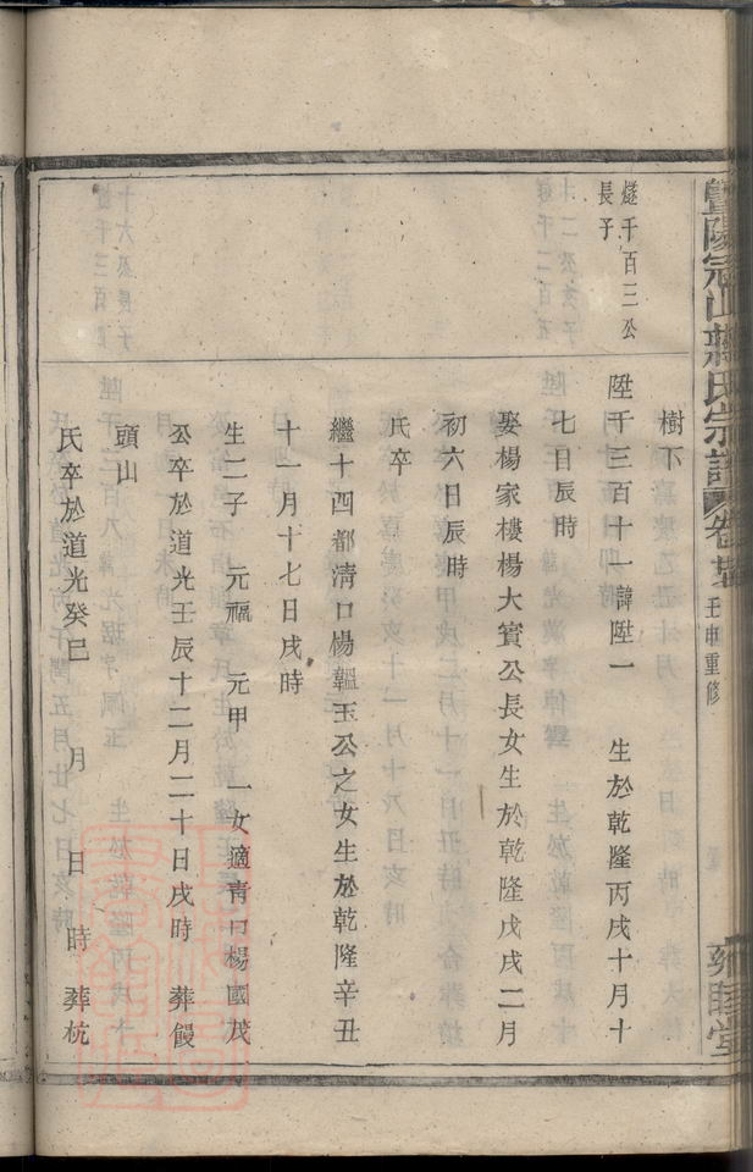 暨陽宗山蔣氏宗譜
壬申重修
雍睦堂
燧千百三公
長子
樹下
陞千三百十一諱陞一 生於乾隆丙戌十月十
七日辰時
娶楊家樓楊大賓公長女生於乾隆戊戌二月
初六日辰時
氏卒
繼十四都清口楊韞玉公之女生於乾隆辛丑
十一月十七日戌時
生二子 元福 元甲 一女適青口楊國茂
公卒於道光壬辰十二月二十日戌時 葬饅
頭山
氏卒於道光癸巳 月 日 時 葬杭